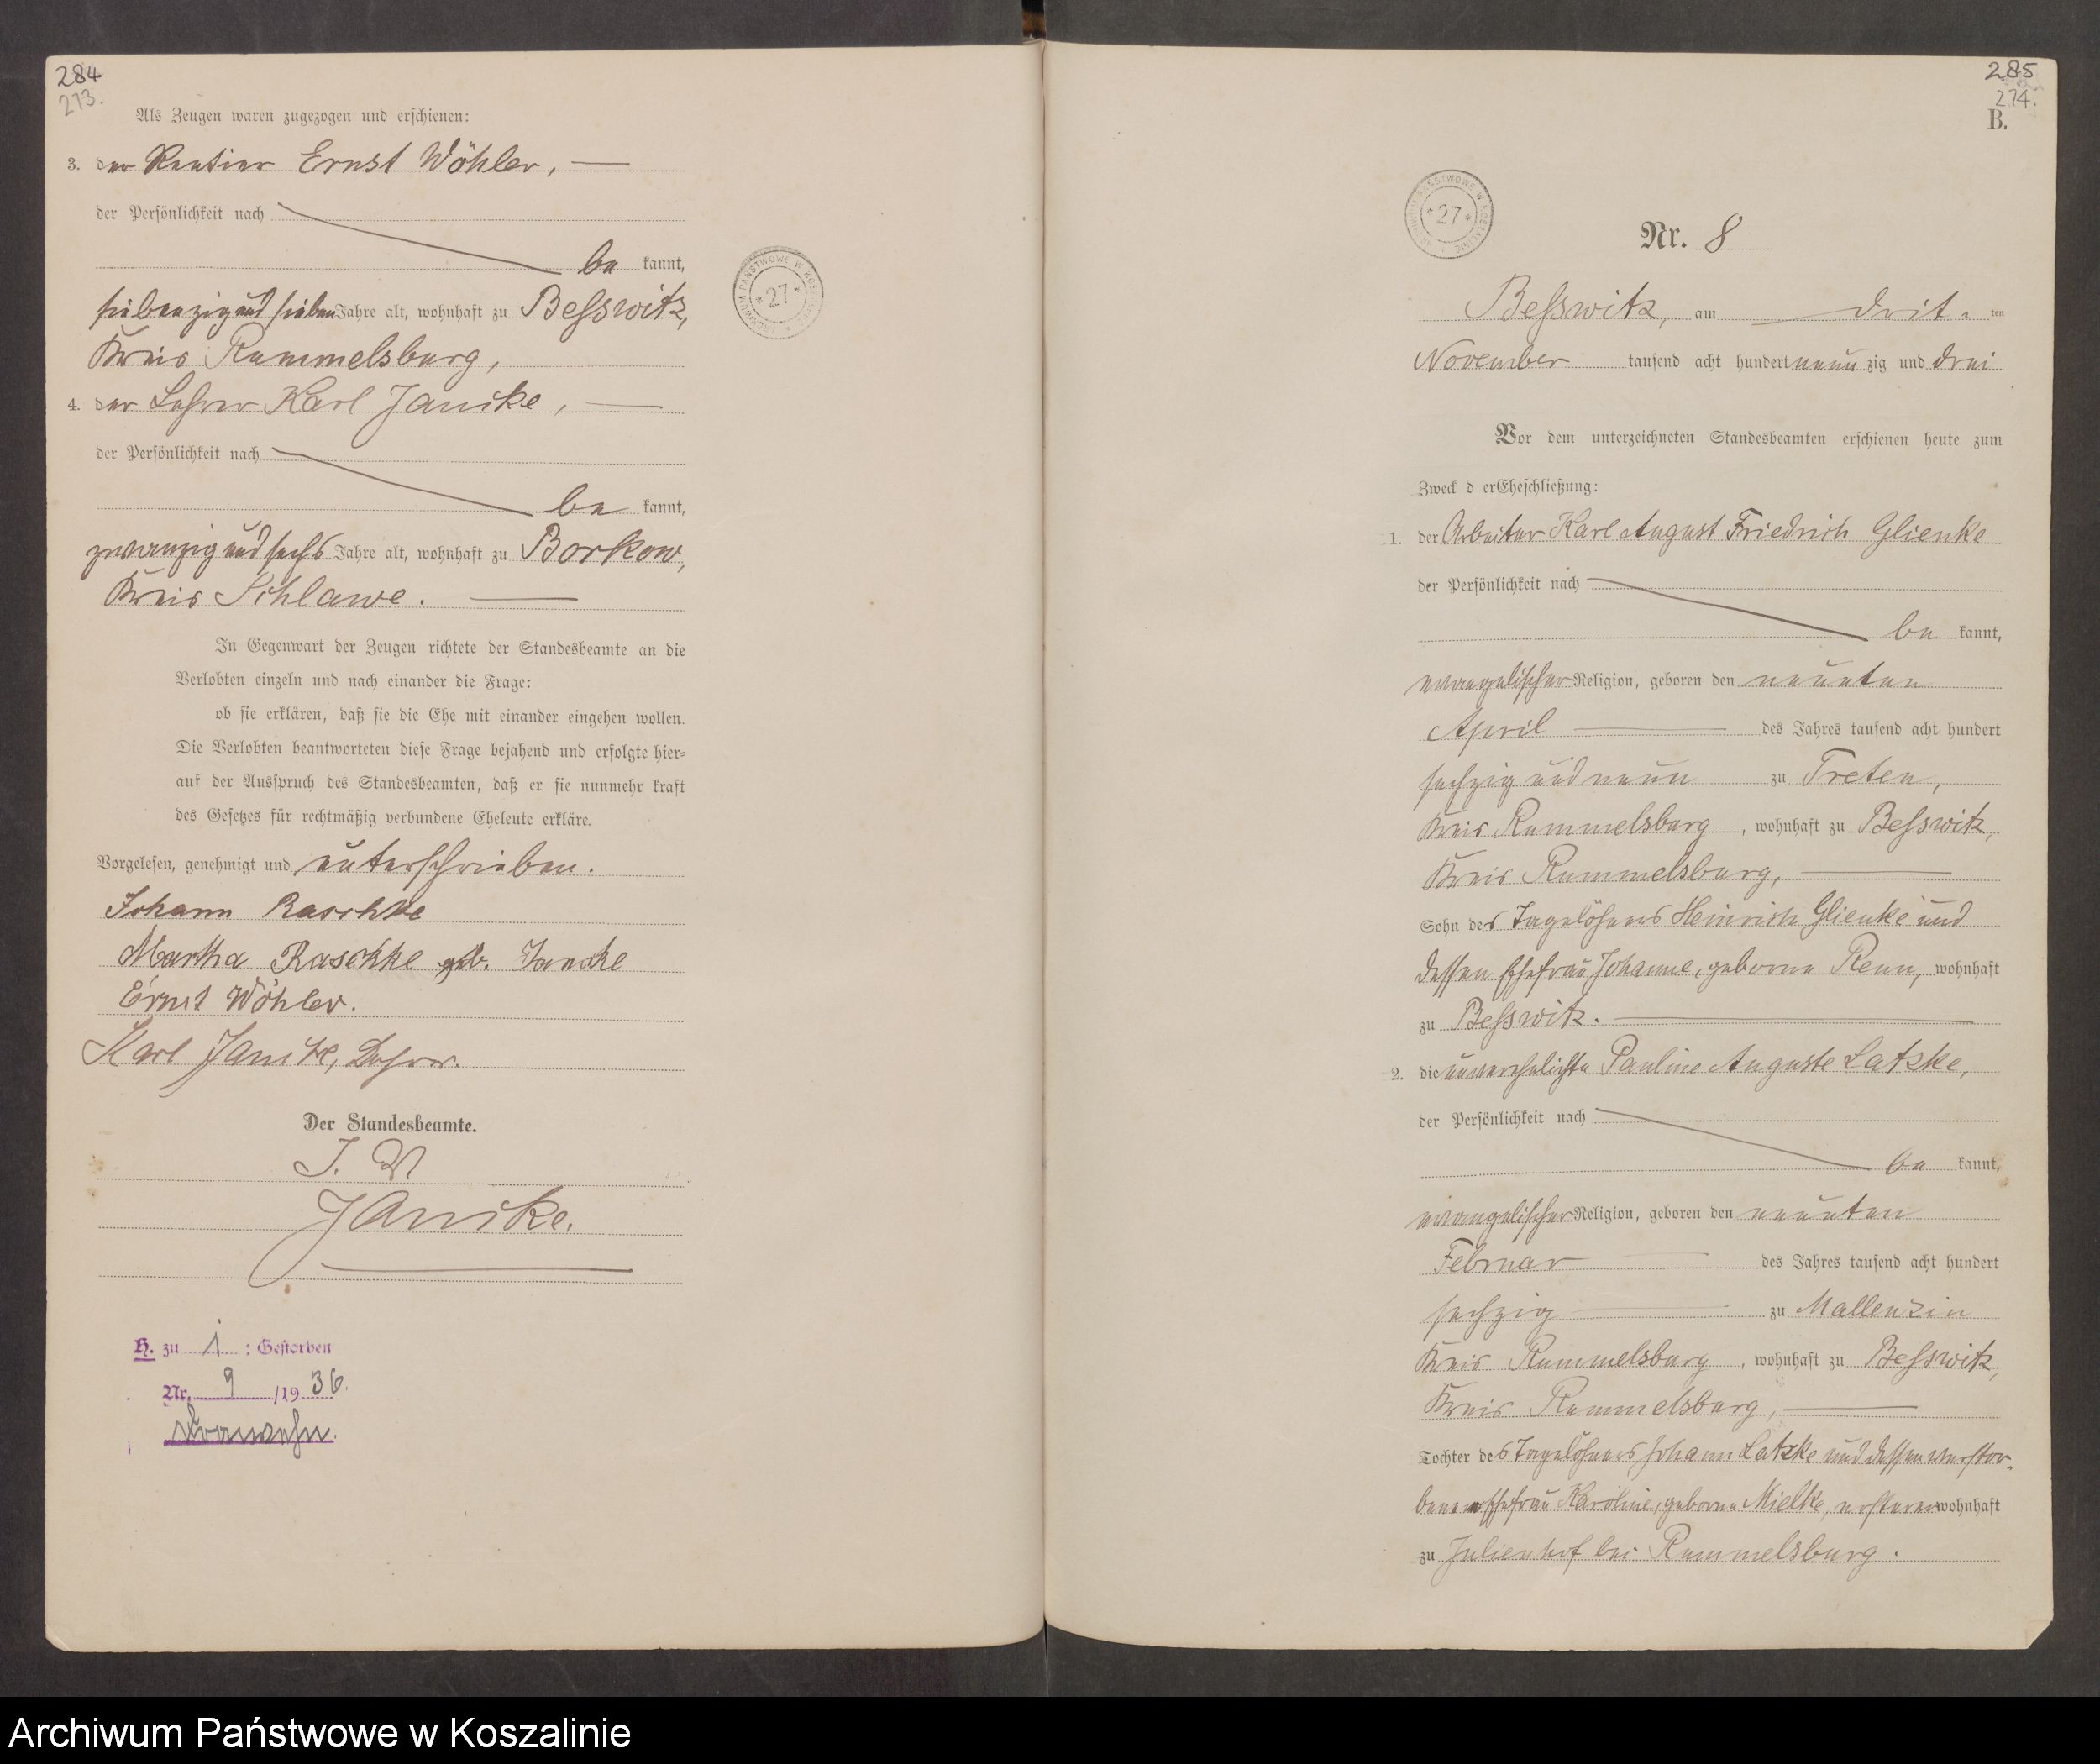 284
273.
Als Zeugen waren zugezogen und erschienen:
3. der Rentier Ernst Wöhler,
der Persönlichkeit nach
be kannt,
siebenzig und sieben Jahre alt, wohnhaft zu Beßswitz,
Kreis Rummelsburg,
4. der Lehrer Karl Jancke,
der Persönlichkeit nach
be kannt,
zwanzig und sechs Jahre alt, wohnhaft zu Borkow,
Kreis Schlawe.
In Gegenwart der Zeugen richtete der Standesbeamte an die
Verlobten einzeln und nach einander die Frage:
ob sie erklären, daß sie die Ehe mit einander eingehen wollen.
Die Verlobten beantworteten diese Frage bejahend und erfolgte hier-
auf der Ausspruch des Standesbeamten, daß er sie nunmehr kraft
des Gesetzes für rechtmäßig verbundene Eheleute erkläre.
Vorgelesen, genehmigt und unterschrieben.
Johann Raschke
Martha Raschke geb. Jancke
Ernst Wöhler.
Karl Jancke, Lehrer.
Der Standesbeamte.
J. V
Jancke.
H. zu 1 : Gestorben
Nr. 9 /19 36.
ARCHIWUM PAŃSTWOWE W KOSZALINIE
* 27 *
285
274.
B.
ARCHIWUM PAŃSTWOWE W KOSZALINIE
* 27 *
Nr. 8
Beßswitz, am drit- ten
November tausend acht hundert neun zig und drei
Vor dem unterzeichneten Standesbeamten erschienen heute zum
Zweck d er Eheschließung:
1. der Arbeiter Karl August Friedrich Glienke
der Persönlichkeit nach
be kannt,
evangelischer Religion, geboren den neunten
April des Jahres tausend acht hundert
sechzig und neun zu Treten,
Kreis Rummelsburg, wohnhaft zu Beßswitz,
Kreis Rummelsburg,
Sohn des Tagelöhners Heinrich Glienke und
dessen Ehefrau Johanne, geborne Renn, wohnhaft
zu Beßswitz.
2. die unverehelichte Pauline Auguste Latzke,
der Persönlichkeit nach
be kannt,
evangelischer Religion, geboren den neunten
Februar des Jahres tausend acht hundert
sechzig zu Mallenzin
Kreis Rummelsburg, wohnhaft zu Beßswitz,
Kreis Rummelsburg,
Tochter des Tagelöhners Johann Latzke und dessen verstor-
benen Ehefrau Karoline, geborne Mielke, ersterer wohnhaft
zu Julienhof bei Rummelsburg.
Archiwum Państwowe w Koszalinie